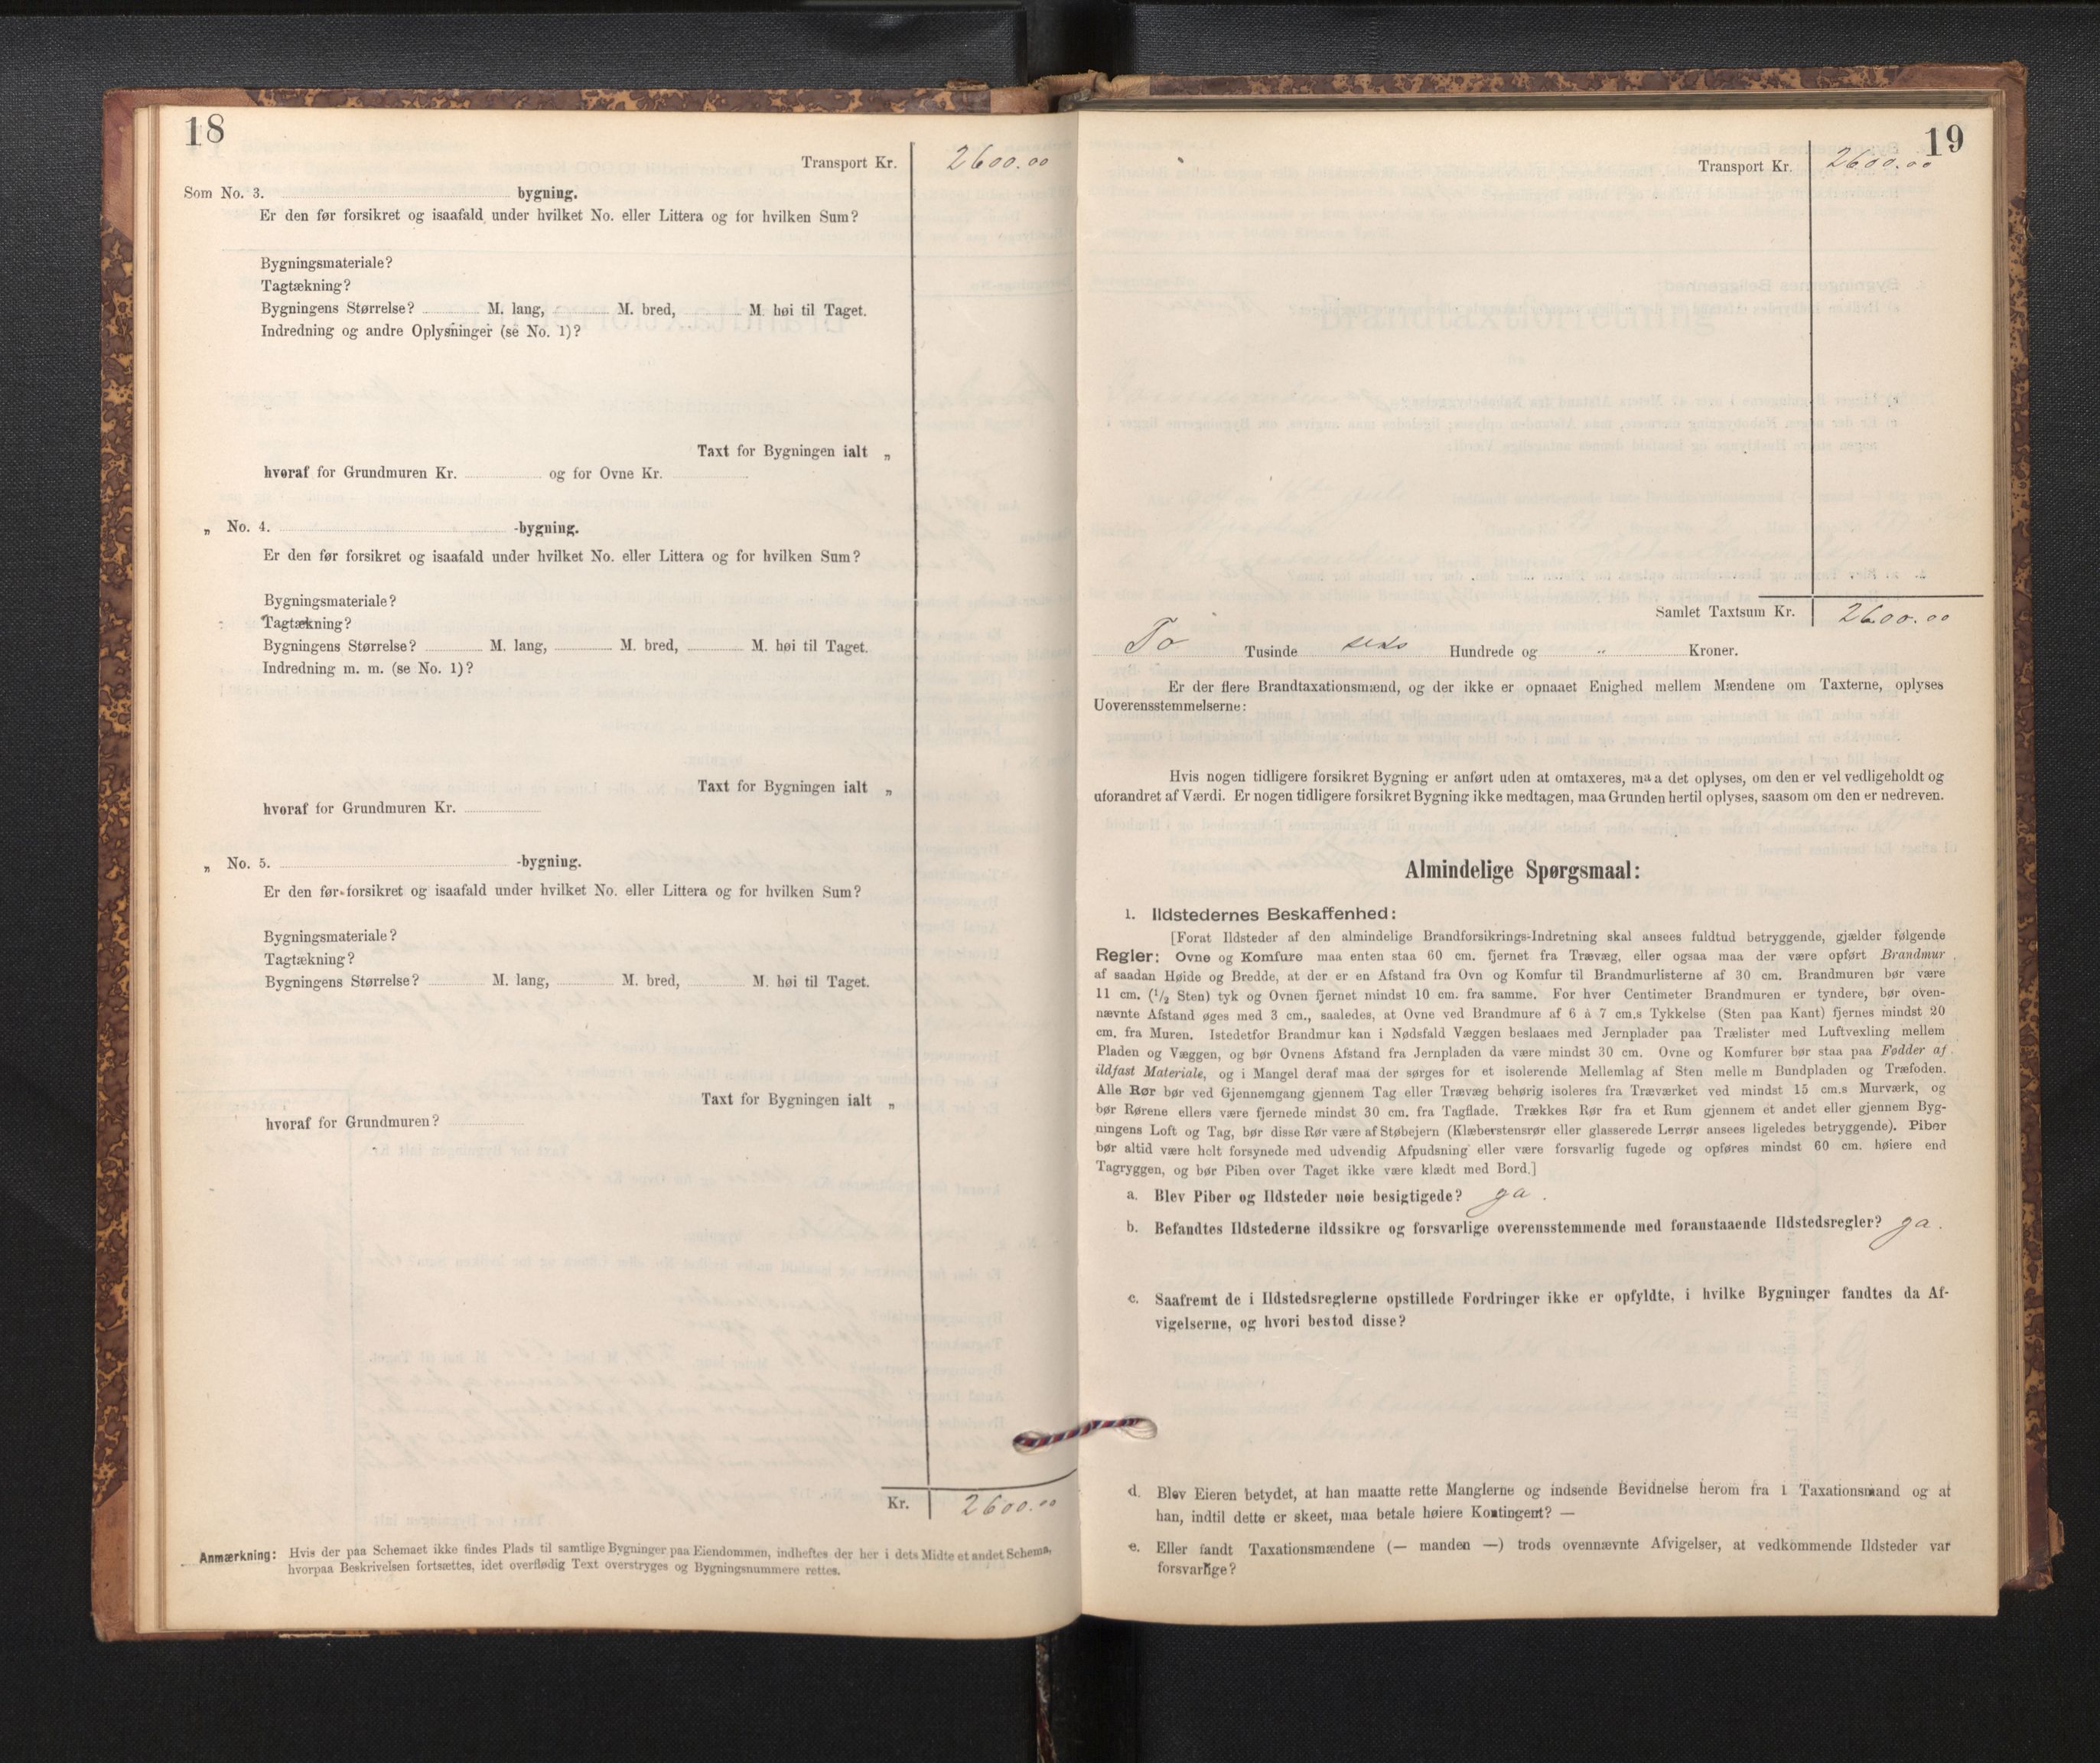 18
Transport Kr. 2600.00
Som No. 3. bygning.
Er den før forsikret og isaafald under hvilket No. eller Littera og for hvilken Sum?
Bygningsmateriale?
Tagtækning?
Bygningens Størrelse? M. lang, M. bred, M. høi til Taget.
Indredning og andre Oplysninger (se No. 1)?
Taxt for Bygningen ialt „
hvoraf for Grundmuren Kr. og for Ovne Kr.
„ No. 4. -bygning.
Er den før forsikret og isaafald under hvilket No. eller Littera og for hvilken Sum?
Bygningsmateriale?
Tagtækning?
Bygningens Størrelse? M. lang, M. bred, M. høi til Taget.
Indredning m. m. (se No. 1)?
Taxt for Bygningen ialt „
hvoraf for Grundmuren Kr.
„ No. 5. -bygning.
Er den før forsikret og isaafald under hvilket No. eller Littera og for hvilken Sum?
Bygningsmateriale?
Tagtækning?
Bygningens Størrelse? M. lang, M. bred, M. høi til Taget.
Taxt for Bygningen ialt „
hvoraf for Grundmuren?
Kr. 2600.00
Anmærkning: Hvis der paa Schemaet ikke findes Plads til samtlige Bygninger paa Eiendommen, indheftes der her i dets Midte et andet Schema,
hvorpaa Beskrivelsen fortsættes, idet overflødig Text overstryges og Bygningsnummere rettes.
19
Transport Kr. 2600.00
Samlet Taxtsum Kr. 2600.00
To Tusinde seks Hundrede og „ Kroner.
Er der flere Brandtaxationsmænd, og der ikke er opnaaet Enighed mellem Mændene om Taxterne, oplyses
Uoverensstemmelserne:
Hvis nogen tidligere forsikret Bygning er anført uden at omtaxeres, maa det oplyses, om den er vel vedligeholdt og
uforandret af Værdi. Er nogen tidligere forsikret Bygning ikke medtagen, maa Grunden hertil oplyses, saasom om den er nedreven.
Almindelige Spørgsmaal:
1. Ildstedernes Beskaffenhed:
[Forat Ildsteder af den almindelige Brandforsikrings-Indretning skal ansees fuldtud betryggende, gjælder følgende
Regler: Ovne og Komfure maa enten staa 60 cm. fjernet fra Trævæg, eller ogsaa maa der være opført Brandmur
af saadan Høide og Bredde, at der er en Afstand fra Ovn og Komfur til Brandmurlisterne af 30 cm. Brandmuren bør være
11 cm. (1/2 Sten) tyk og Ovnen fjernet mindst 10 cm. fra samme. For hver Centimeter Brandmuren er tyndere, bør oven-
nævnte Afstand øges med 3 cm., saaledes, at Ovne ved Brandmure af 6 à 7 cm.s Tykkelse (Sten paa Kant) fjernes mindst 20
cm. fra Muren. Istedetfor Brandmur kan i Nødsfald Væggen beslaaes med Jernplader paa Trælister med Luftvexling mellem
Pladen og Væggen, og bør Ovnens Afstand fra Jernpladen da være mindst 30 cm. Ovne og Komfurer bør staa paa Fødder af
ildfast Materiale, og i Mangel deraf maa der sørges for et isolerende Mellemlag af Sten mellem Bundpladen og Træfoden.
Alle Rør bør ved Gjennemgang gjennem Tag eller Trævæg behørig isoleres fra Træværket ved mindst 15 cm.s Murværk, og
bør Rørene ellers være fjernede mindst 30 cm. fra Tagflade. Trækkes Rør fra et Rum gjennem et andet eller gjennem Byg-
ningens Loft og Tag, bør disse Rør være af Støbejern (Klæberstensrør eller glasserede Lerrør ansees ligeledes betryggende). Piber
bør altid være helt forsynede med udvendig Afpudsning eller være forsvarlig fugede og opføres mindst 60 cm. høiere end
Tagryggen, og bør Piben over Taget ikke være klædt med Bord.]
a. Blev Piber og Ildsteder nøie besigtigede? ja.
b. Befandtes Ildstederne ildssikre og forsvarlige overensstemmende med foranstaaende Ildstedsregler? ja.
c. Saafremt de i Ildstedsreglerne opstillede Fordringer ikke er opfyldte, i hvilke Bygninger fandtes da Af-
vigelserne, og hvori bestod disse?
d. Blev Eieren betydet, at han maatte rette Manglerne og indsende Bevidnelse herom fra 1 Taxationsmand og at
han, indtil dette er skeet, maa betale høiere Kontingent? —
e. Eller fandt Taxationsmændene (— manden —) trods ovennævnte Afvigelser, at vedkommende Ildsteder var
forsvarlige?